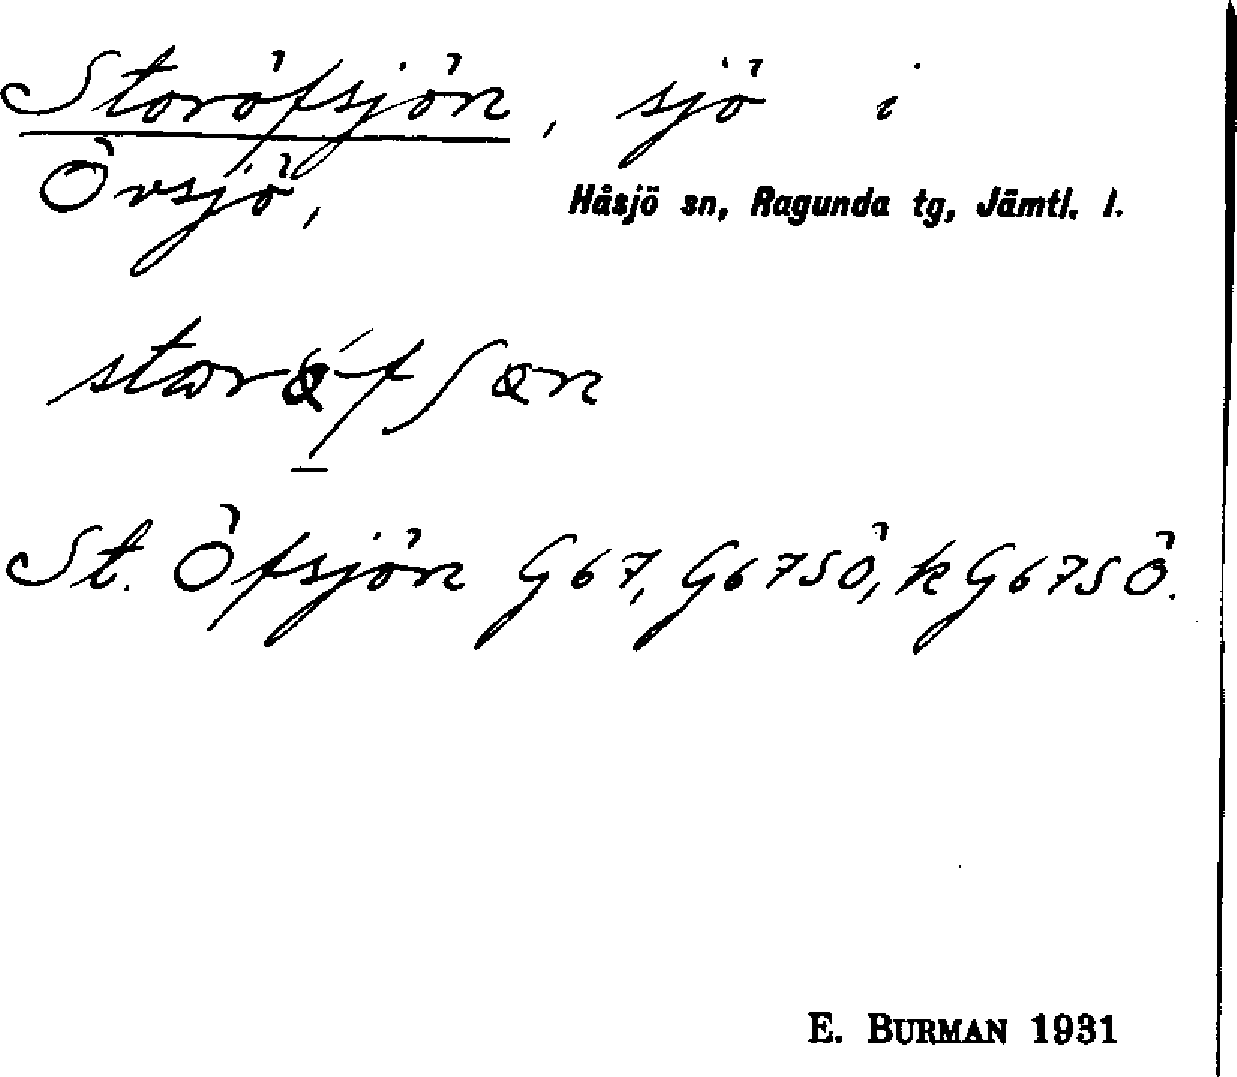 Storöfsjön, sjö i
Övsjö, Håsjö sn, Ragunda tg, Jämtl. l.
St. Öfsjön G67, G67SÖ, kG67SÖ.
E. BURMAN 1931